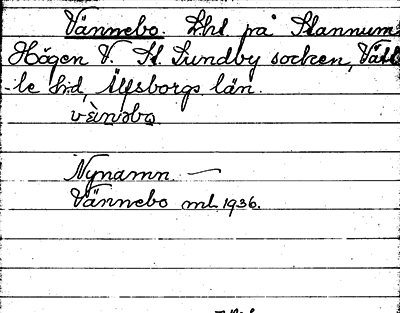 Vännebo. Lht på Stannum
Högen V. St. Lundby socken, Vätt
-le hd, Älfsborgs län.
vὲnəbo

Nynamn. —
Vännebo ml. 1936.